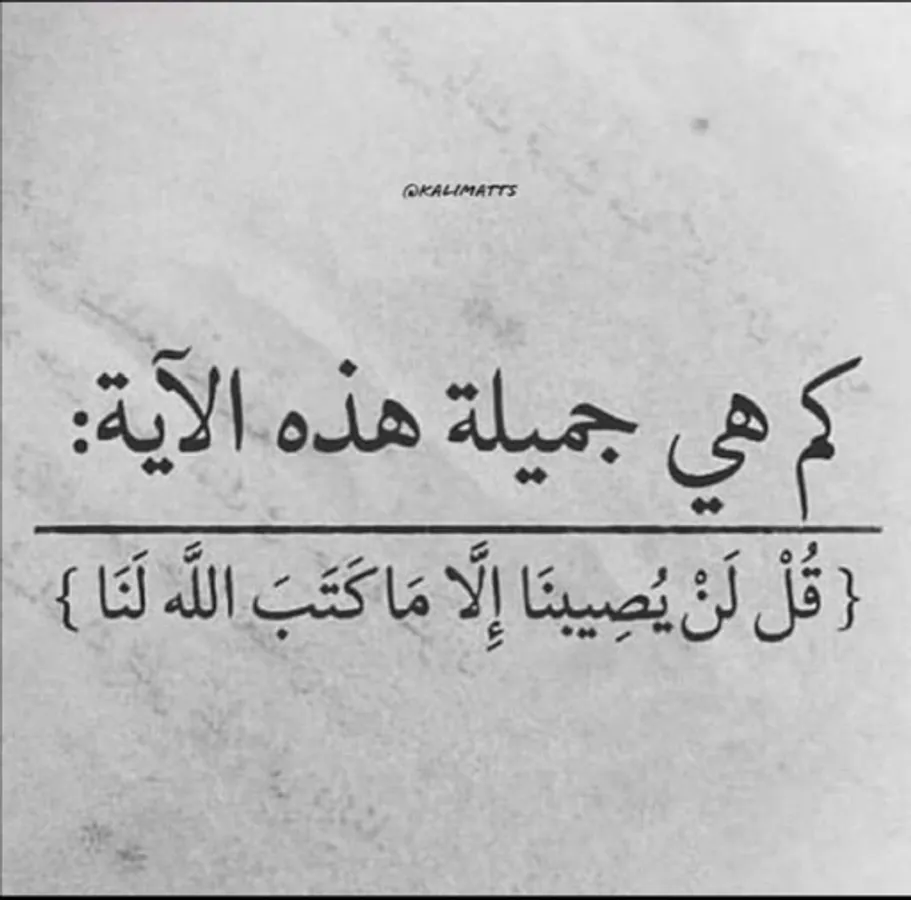 @KALIMATTS
كم هي جميلة هذه الآية:
{ قُلْ لَنْ يُصِيبنَا إِلَّا مَا كَتَبَ اللَّه لَنَا }